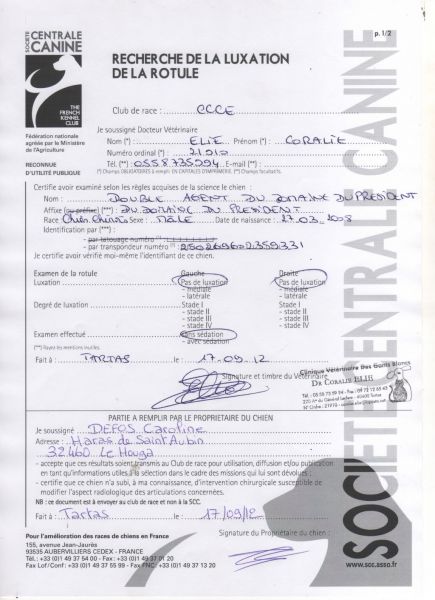 p. 1/2
SOCIÉTÉ
CENTRALE
CANINE
THE
FRENCH
KENNEL
CLUB
Fédération nationale
agréée par le Ministère
de l'Agriculture
RECONNUE
D'UTILITÉ PUBLIQUE
RECHERCHE DE LA LUXATION
DE LA ROTULE
Club de race : CCCE
Je soussigné Docteur Vétérinaire
Nom (*) : ELIE Prénom (*) : CORALIE
Numéro ordinal (*) : 21910
Tél. (**) : 0558735994 E-mail (**) :
(*) Champs OBLIGATOIRES à remplir EN CAPITALES D'IMPRIMERIE. (**) Champs facultatifs.
Certifie avoir examiné selon les règles acquises de la science le chien :
Nom : DOUBLE AGENT DU DOMAINE DU PRESIDENT
Affixe (ou préfixe) (***) : DU DOMAINE DU PRESIDENT
Race Chien Chinois Sexe : MALE Date de naissance : 27.03.2008
Identification par (***) :
- par tatouage numéro
- par transpondeur numéro : 250269602359331
Je certifie avoir vérifié moi-même l'identification de ce chien.
Examen de la rotule Gauche Droite
Luxation : Pas de luxation Pas de luxation
- médiale - médiale
- latérale - latérale
Degré de luxation : Stade I Stade I
- stade II - stade II
- stade III - stade III
- stade IV - stade IV
Examen effectué : sans sédation
- avec sédation
(***) Rayez les mentions inutiles.
Fait à : TARTAS le : 17.09.12
Signature et timbre du Vétérinaire
Clinique Vétérinaire Des Gants Blancs
DR CORALIE ELIE
PARTIE A REMPLIR PAR LE PROPRIETAIRE DU CHIEN
Je soussigné : DEFOS Caroline
Adresse : Haras de Saint Aubin
32460 Le Houga
- accepte que ces résultats soient transmis au Club de race pour utilisation, diffusion et/ou publication
en tant qu'informations utiles à la sélection dans le cadre des missions qui lui sont dévolues :
- certifie que ce chien n'a subi, à ma connaissance, d'intervention chirurgicale susceptible de
modifier l'aspect radiologique des articulations concernées.
NB : ce document est à envoyer au club de race et non à la SCC.
Fait à : Tartas le : 17/09/12
Signature du Propriétaire du chien :
Pour l'amélioration des races de chiens en France
155, avenue Jean-Jaurès
93535 AUBERVILLIERS CEDEX - FRANCE
Tél. : +33 (0)1 49 37 54 00 - Fax : +33 (0)1 49 37 01 20
Fax Lof/Conf : +33 (0)1 49 37 55 99 - Fax FNC : +33 (0)1 49 37 13 20
www.scc.asso.fr
SOCIÉTÉ CENTRALE CANINE